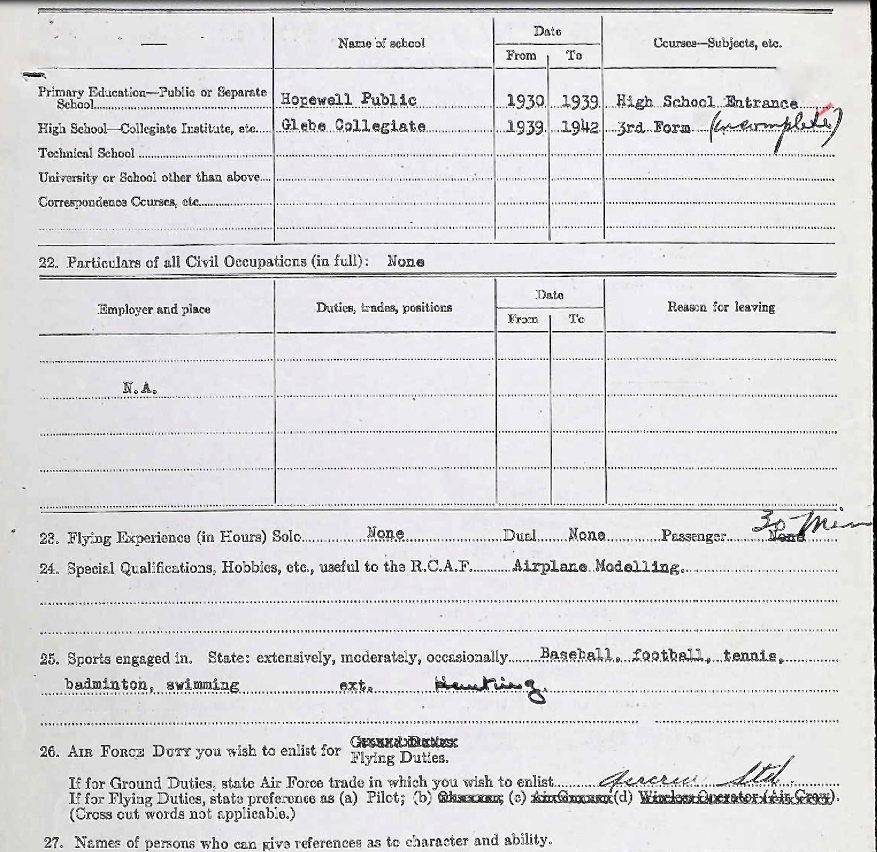 Name of school
Date
Courses—Subjects, etc.
From
To
Primary Education—Public or Separate
School
Hopewell Public
1930
1939
High School Entrance
High School—Collegiate Institute, etc.
Glebe Collegiate
1939
1942
3rd Form (incomplete)
Technical School
University or School other than above
Correspondence Courses, etc.
22. Particulars of all Civil Occupations (in full): None
Employer and place
Duties, trades, positions
Date
Reason for leaving
From
To
N.A.
30 Min
23. Flying Experience (in Hours) Solo None Dual None Passenger None
24. Special Qualifications, Hobbies, etc., useful to the R.C.A.F. Airplane Modelling.
25. Sports engaged in. State: extensively, moderately, occasionally Baseball, football, tennis,
badminton, swimming ext. Hunting.
Ground Duties
26. AIR FORCE DUTY you wish to enlist for
Flying Duties.
If for Ground Duties, state Air Force trade in which you wish to enlist Aircrew Std
If for Flying Duties, state preference as (a) Pilot; (b) Observer; (c) Air Gunner (d) Wireless Operator (Air Crew).
(Cross out words not applicable.)
27. Names of persons who can give references as to character and ability.